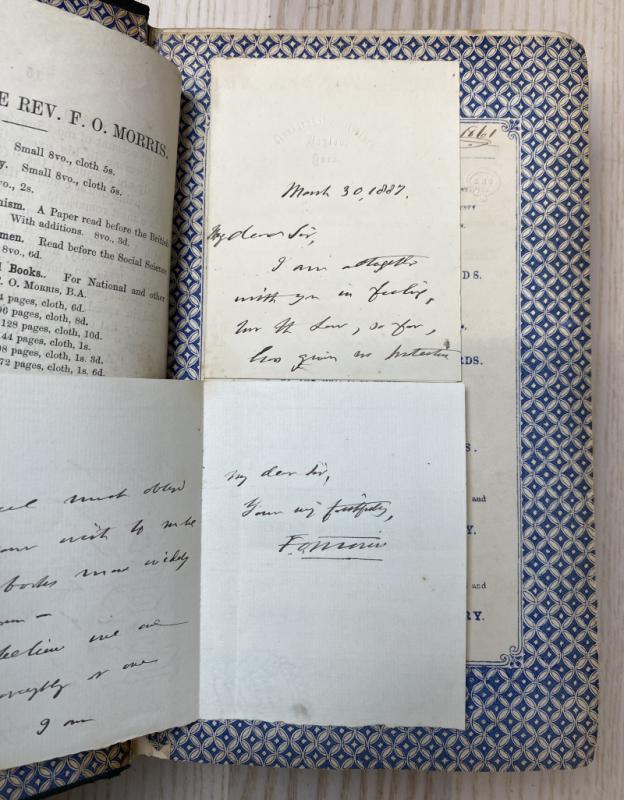 E REV. F. O. MORRIS.
Small 8vo., cloth 5s.
y. Small 8vo., cloth 5s.
vo., 2s.
nism. A Paper read before the British
With additions. 8vo., 3d.
men. Read before the Social Science
8vo., 6d.
l Books. For National and other
. O. MORRIS, B.A.
4 pages, cloth, 6d.
96 pages, cloth, 8d.
128 pages, cloth, 10d.
144 pages, cloth, 1s.
08 pages, cloth, 1s. 3d.
72 pages, cloth, 1s. 6d.
March 30, 1887.
My dear Sir,
I am altogether
with you in feeling,
but the Law, so far,
has given no protection
much obliged
your wish to make
books more widely
believe we are
thoroughly at one
I am
My dear Sir,
Yours very faithfully,
F. O. Morris
1861
DS.
RDS.
S.
and
Y.
and
RY.